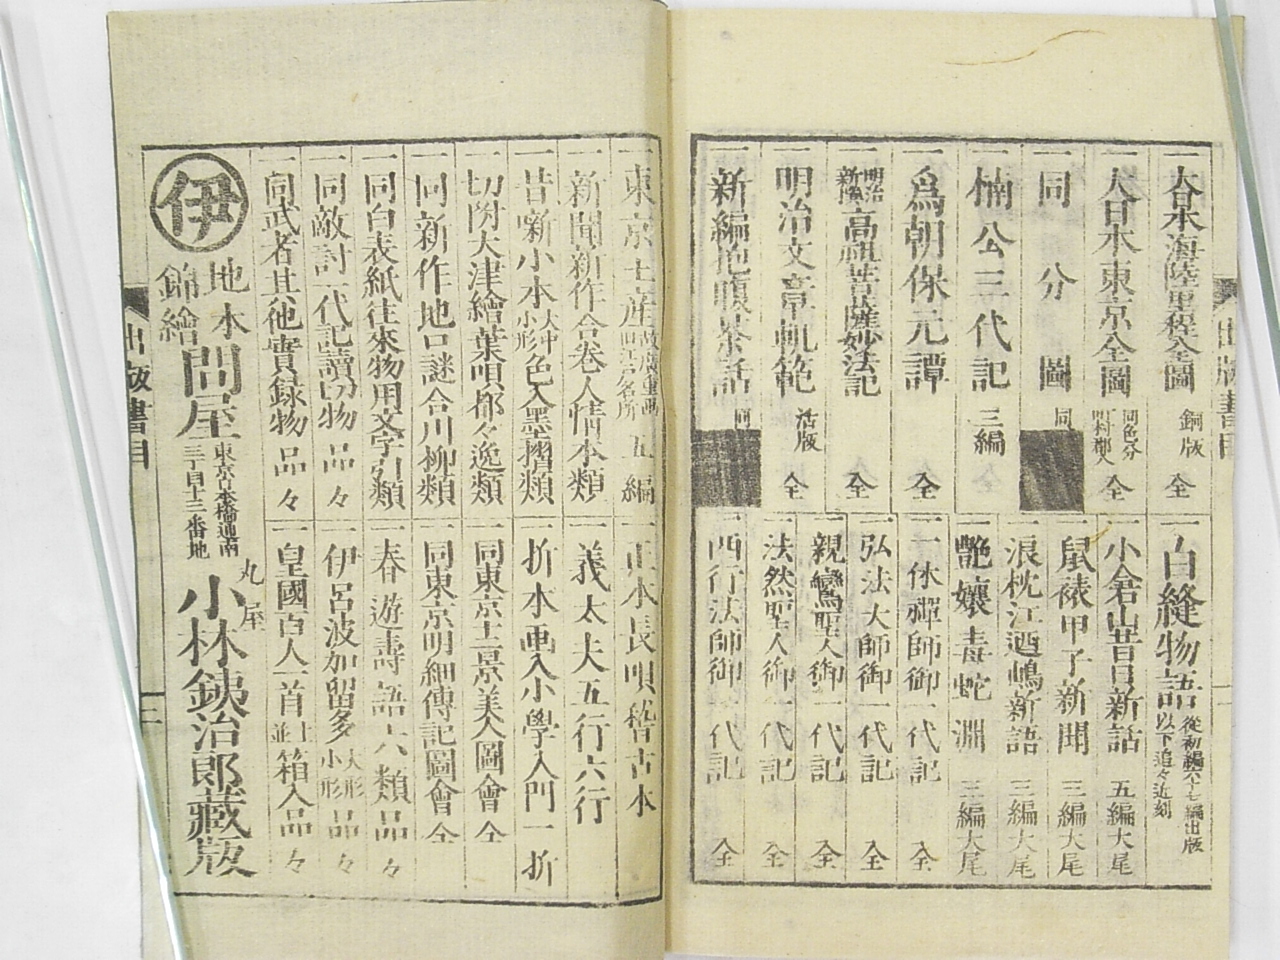 一大日本海陸里程全圖 銅版 全
一大日本東京全圖 同色分 町村郷入 全
一同分圖 同
一楠公三代記 三編
一爲朝保元譚 全
一明治新撰高祖菩薩妙法記 全
一明治文章軌範 活版 全
一新編 茶話 同
一白縫物語 從初編六十七編出版 以下追々近刻
一小倉山昔日新話 五編大尾
一鼠裱甲子新聞 三編大尾
一浪枕江廼嶋新語 三編大尾
一艶孃毒蛇淵 三編大尾
一一休禪師御一代記 全
一弘法大師御一代記 全
一親鸞聖人御一代記 全
一法然聖人御一代記 全
一西行法師御一代記 全
出版書目
一東京土産 故廣重画 旧江戸名所 五編
一新聞新作合巻人情本類
一昔噺小本 大中小形 色入墨摺類
一切附大津繪葉唄都々逸類
一同新作地口謎合川柳類
一同白表紙往來物用文字引類
一同敵討一代記讀切物 品々
一同武者其他實録物 品々
一正本長唄稽古本
一義太夫五行六行
一折本画入小學入門一折
一同東京土景美人圖會 全
一同東京明細傳記圖會 全
一春遊壽語六類品々
一伊呂波加留多 大形小形 品々
一皇國百人一首 並上 箱入品々
伊 地本錦繪問屋 東京日本橋通南三丁目十三番地 丸屋 小林鉄治郎藏版
出版書目 二